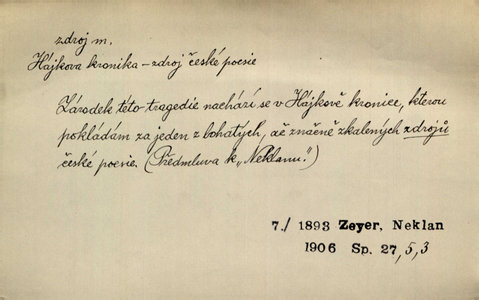 zdroj m.
Hájkova kronika – zdroj české poesie
Zárodek této tragedie nachází se v Hájkově kronice, kterou
pokládám za jeden z bohatých, ač značně zkalených zdrojů
české poesie. (Předmluva k „Neklanu“.)
7./ 1893 Zeyer, Neklan
1906 Sp. 27,5,3